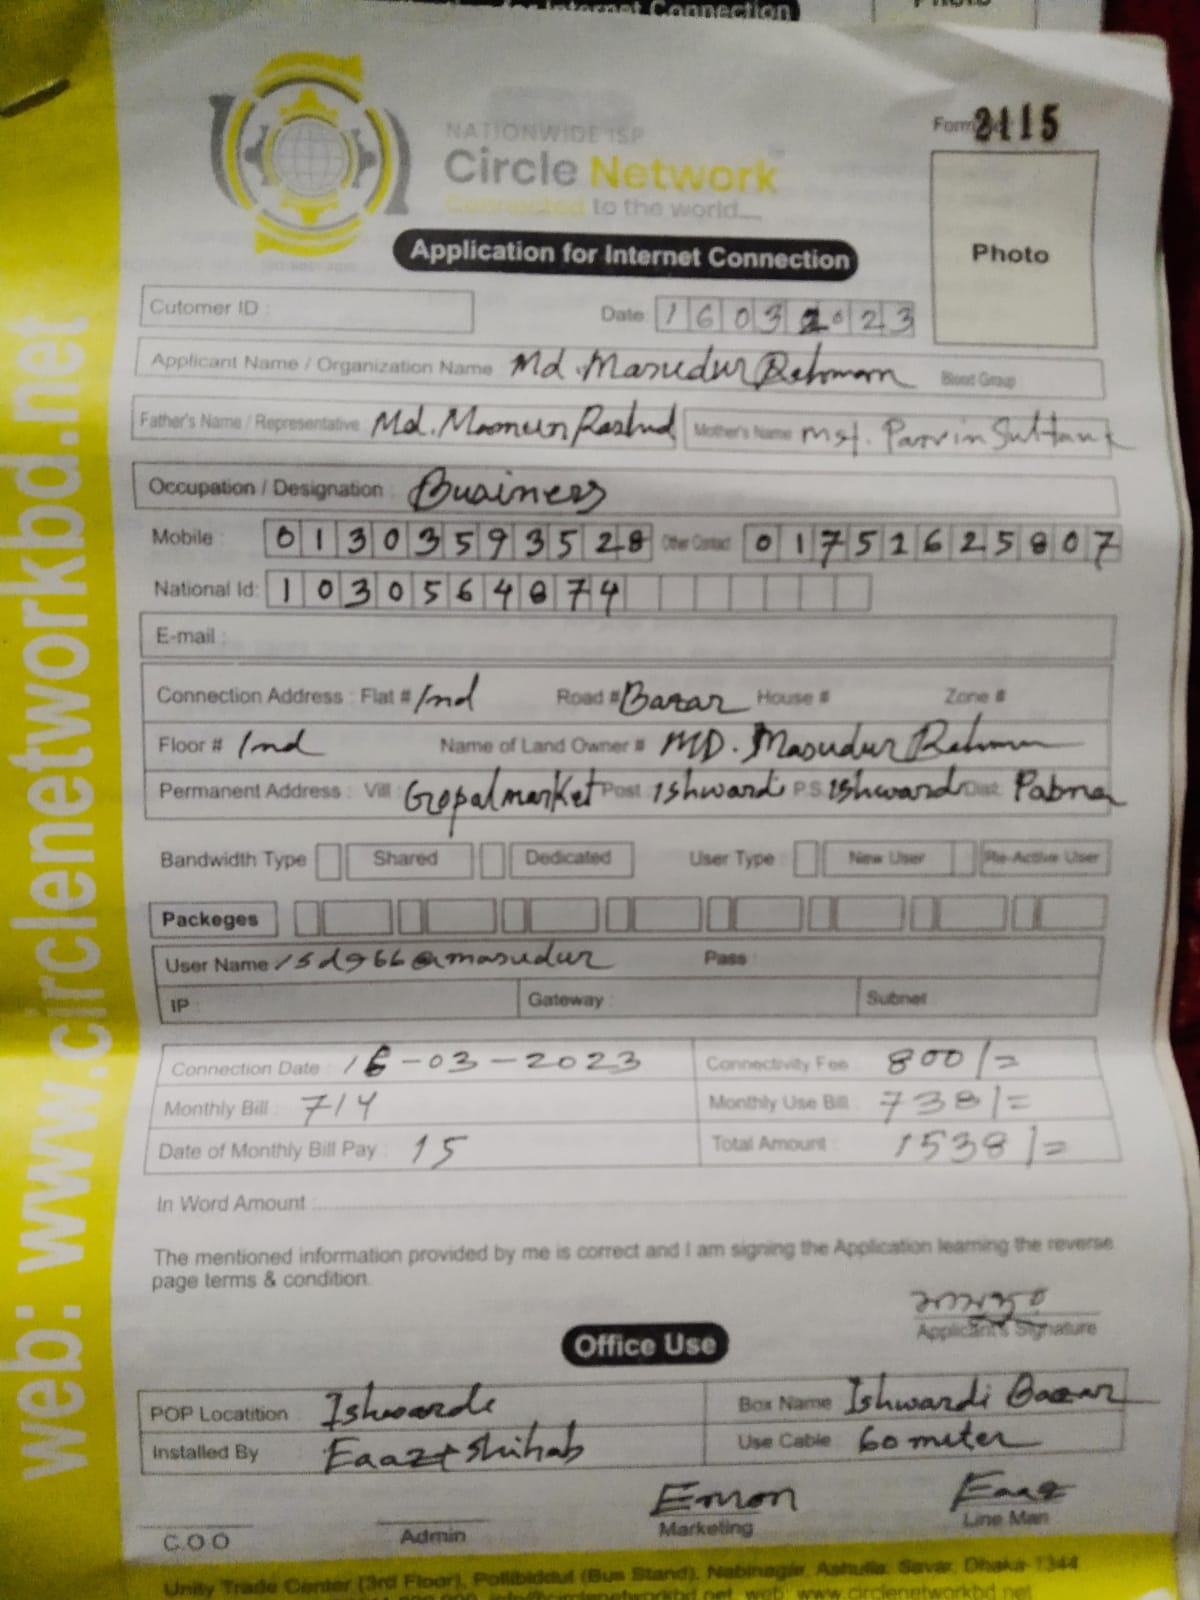 for Internet Connection
NATIONWIDE ISP
Circle Network
Connected to the world...
Form 2115
Photo
Application for Internet Connection
Cutomer ID :
Date 16032023
Applicant Name / Organization Name Md. Masudur Rahman Blood Group
Father's Name / Representative Md. Mamun Rashid Mother's Name Mst. Parvin Sultana
Occupation / Designation : Business
Mobile : 01303593528 Other Contact 01751625807
National Id: 1030564874
E-mail :
Connection Address : Flat # Ind Road # Bazar House # Zone #
Floor # Ind Name of Land Owner # MD. Masudur Rahman
Permanent Address : Vill Gopalmarket Post Ishwardi P.S. Ishwardi Dist. Pabna
Bandwidth Type Shared Dedicated User Type New User Re-Active User
Packeges
User Name 15d966@masudur Pass :
IP : Gateway : Subnet
Connection Date : 16-03-2023 Connectivity Fee 800/=
Monthly Bill : 714 Monthly Use Bill : 738/=
Date of Monthly Bill Pay : 15 Total Amount : 1538/=
In Word Amount :
The mentioned information provided by me is correct and I am signing the Application learning the reverse
page terms & condition.
Applicant's Signature
Office Use
POP Locatition : Ishwardi Box Name Ishwardi Bazar
Installed By Eaaz + Shihab Use Cable 60 meter
Emon Eaaz
C.O.O Admin Marketing Line Man
Unity Trade Center (3rd Floor), Pollibiddut (Bus Stand), Nabinagar, Ashulia, Savar, Dhaka-1344
web: www.circlenetworkbd.net
web: www.circlenetworkbd.net